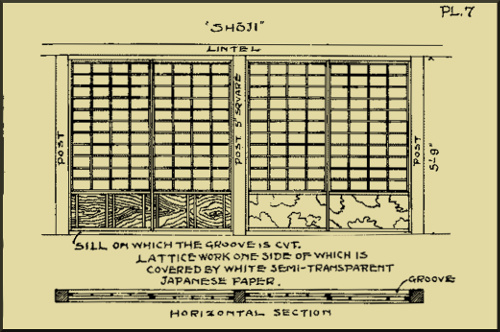 PL.7
"SHŌJI"
LINTEL
POST
POST 5" SQUARE
POST
5'-9"
SILL ON WHICH THE GROOVE IS CUT.
LATTICE WORK ONE SIDE OF WHICH IS
COVERED BY WHITE SEMI-TRANSPARENT
JAPANESE PAPER.
GROOVE
HORIZONTAL SECTION